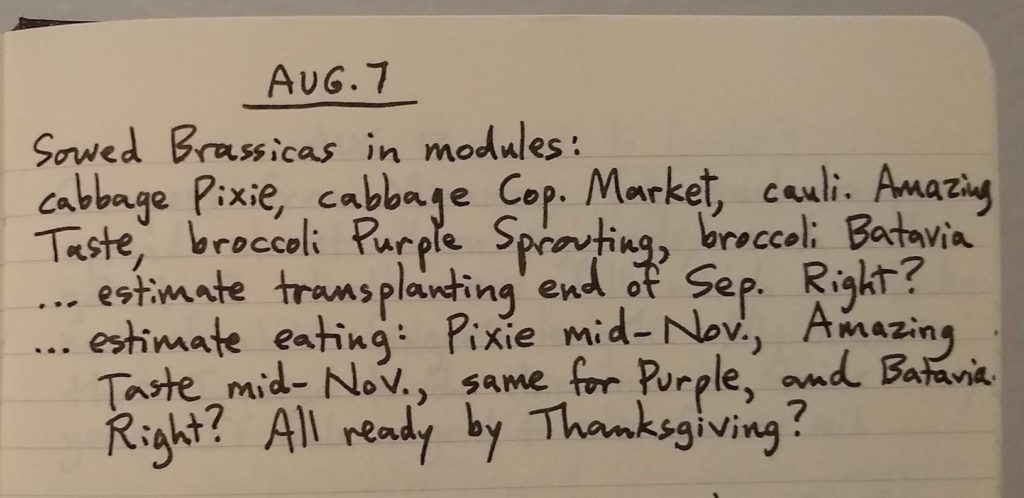 AUG. 7
Sowed Brassicas in modules:
cabbage Pixie, cabbage Cop. Market, cauli. Amazing
Taste, broccoli Purple Sprouting, broccoli Batavia
... estimate transplanting end of Sep. Right?
... estimate eating: Pixie mid-Nov., Amazing
Taste mid-Nov., same for Purple, and Batavia.
Right? All ready by Thanksgiving?